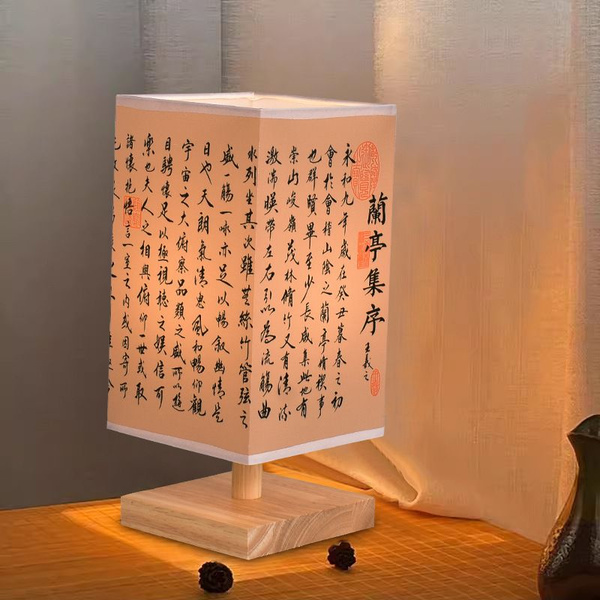 蘭亭集序
王羲之
永和九年歲在癸丑暮春之初
會於會稽山陰之蘭亭脩稧事
也群賢畢至少長咸集此地有
崇山峻嶺茂林脩竹又有清流
激湍暎帶左右引以為流觴曲
水列坐其次雖無絲竹管弦之
盛一觴一詠亦足以暢叙幽情是
日也天朗氣清惠風和暢仰觀
宇宙之大俯察品類之盛所以遊
目騁懷足以極視聽之娛信可
樂也夫人之相與俯仰一世或取
諸懷抱悟言一室之內或因寄所